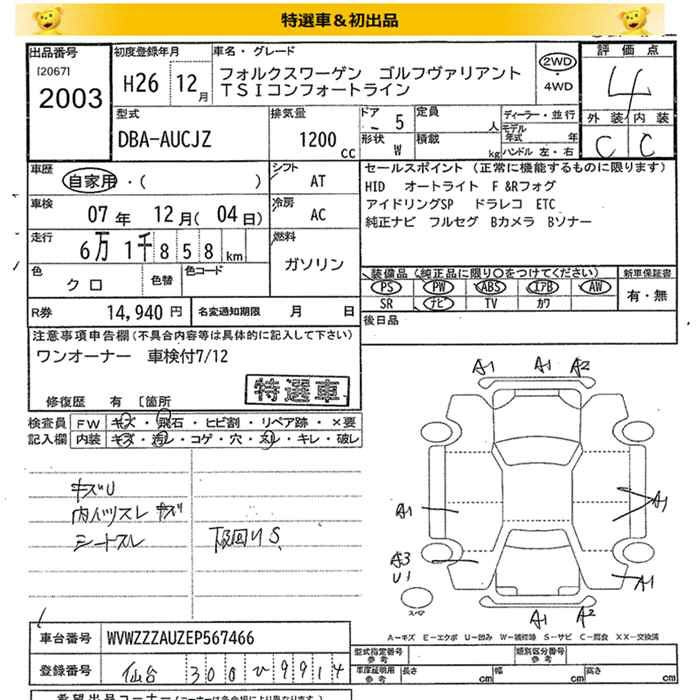 特選車＆初出品
出品番号
[2067]
2003
初度登録年月
H26 12月
車名・グレード
フォルクスワーゲン ゴルフヴァリアント
ＴＳＩコンフォートライン
2WD
・
4WD
評価点
4
外装 内装
C C
型式
DBA-AUCJZ
排気量
1200
cc
ドア 5
形状 W
定員 人
積載 kg
ディーラー・並行
モデル年式 年
ハンドル 左・右
車歴
自家用・( )
シフト
AT
車検
07年 12月(04日)
冷房
AC
走行
6万1千858km
燃料
ガソリン
色
クロ
色替
色コード
セールスポイント (正常に機能するものに限ります)
HID オートライト F &Rフォグ
アイドリングSP ドラレコ ETC
純正ナビ フルセグ Bカメラ Bソナー
装備品(純正品に限り○をつけてください)
PS PW ABS エアB AW
SR ナビ TV カワ
新車保証書
有・無
R券 14,940 円
名変通知期限 月 日
後日品
注意事項申告欄(不具合内容等は具体的に記入して下さい)
ワンオーナー 車検付7/12
特選車
修復歴 有 [箇所
検査員
記入欄
FW キズ・飛石・ヒビ割・リペア跡・×要
内装 キズ・汚レ・コゲ・穴・スレ・キレ・破レ
キズU
内張スレ キズ
シートスレ
下回りS
A1 A1 A2
A1
A1
A3
U1
A1
スペア
A1 A2
A－キズ E－エクボ U－凹み W－補修跡 S－サビ C－腐食 XX－交換済
車台番号 WVWZZZAUZEP567466
登録番号 仙台 300 ひ 9914
型式指定番号
参考
類別区分番号
参考
車庫証明用
参考
長さ cm 幅 cm 高さ cm
希望出品コーナー